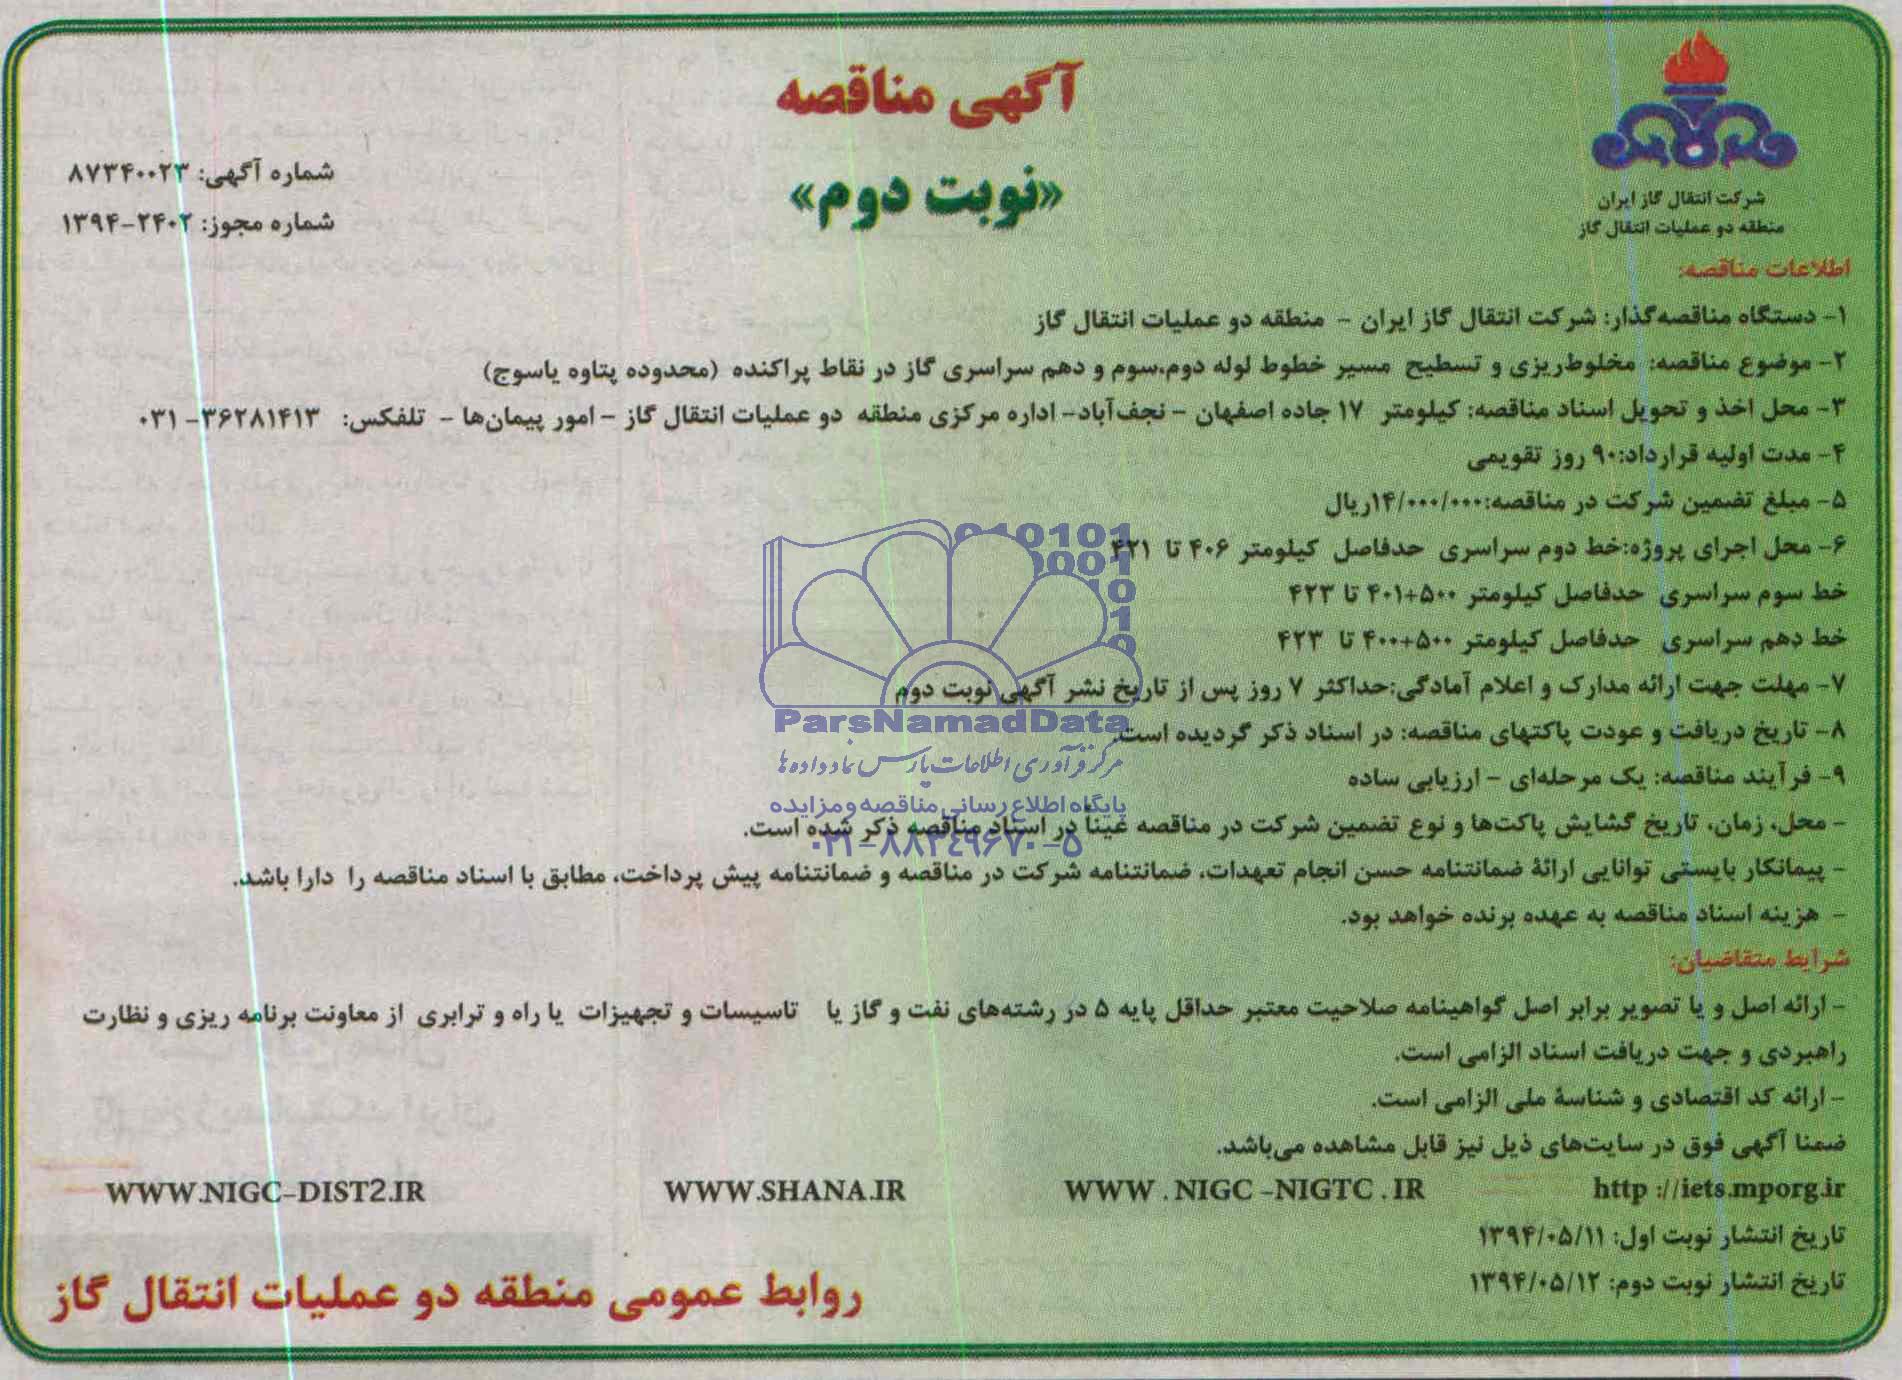 آگهی مناقصه
«نوبت دوم»
شماره آگهی: ۸۷۳۴۰۰۲۳
شماره مجوز: ۲۴۰۲-۱۳۹۴
شرکت انتقال گاز ایران
منطقه دو عملیات انتقال گاز
اطلاعات مناقصه:
۱- دستگاه مناقصه‌گذار: شرکت انتقال گاز ایران - منطقه دو عملیات انتقال گاز
۲- موضوع مناقصه: مخلوط‌ریزی و تسطیح مسیر خطوط لوله دوم،سوم و دهم سراسری گاز در نقاط پراکنده (محدوده پتاوه یاسوج)
۳- محل اخذ و تحویل اسناد مناقصه: کیلومتر ۱۷ جاده اصفهان - نجف‌آباد- اداره مرکزی منطقه دو عملیات انتقال گاز - امور پیمان‌ها - تلفکس: ۳۶۲۸۱۴۱۳- ۰۳۱
۴- مدت اولیه قرارداد:۹۰ روز تقویمی
۵- مبلغ تضمین شرکت در مناقصه:۱۴/۰۰۰/۰۰۰ریال
۶- محل اجرای پروژه:خط دوم سراسری حدفاصل کیلومتر ۴۰۶ تا ۴۲۱
خط سوم سراسری حدفاصل کیلومتر ۵۰۰+۴۰۱ تا ۴۲۳
خط دهم سراسری حدفاصل کیلومتر ۵۰۰+۴۰۰ تا ۴۲۳
۷- مهلت جهت ارائه مدارک و اعلام آمادگی:حداکثر ۷ روز پس از تاریخ نشر آگهی نوبت دوم
۸- تاریخ دریافت و عودت پاکتهای مناقصه: در اسناد ذکر گردیده است.
۹- فرآیند مناقصه: یک مرحله‌ای - ارزیابی ساده
- محل، زمان، تاریخ گشایش پاکت‌ها و نوع تضمین شرکت در مناقصه عیناً در اسناد مناقصه ذکر شده است.
- پیمانکار بایستی توانایی ارائهٔ ضمانتنامه حسن انجام تعهدات، ضمانتنامه شرکت در مناقصه و ضمانتنامه پیش پرداخت، مطابق با اسناد مناقصه را دارا باشد.
- هزینه اسناد مناقصه به عهده برنده خواهد بود.
شرایط متقاضیان:
- ارائه اصل و یا تصویر برابر اصل گواهینامه صلاحیت معتبر حداقل پایه ۵ در رشته‌های نفت و گاز یا تاسیسات و تجهیزات یا راه و ترابری از معاونت برنامه ریزی و نظارت
راهبردی و جهت دریافت اسناد الزامی است.
- ارائه کد اقتصادی و شناسهٔ ملی الزامی است.
ضمنا آگهی فوق در سایت‌های ذیل نیز قابل مشاهده می‌باشد.
http ://iets.mporg.ir WWW . NIGC -NIGTC . IR WWW.SHANA.IR WWW.NIGC-DIST2.IR
تاریخ انتشار نوبت اول: ۱۳۹۴/۰۵/۱۱
تاریخ انتشار نوبت دوم: ۱۳۹۴/۰۵/۱۲
روابط عمومی منطقه دو عملیات انتقال گاز
010101
0001
10
10
ParsNamadData
مرکز فرآوری اطلاعات پارس نماد داده ها
پایگاه اطلاع رسانی مناقصه و مزایده
۰۲۱-۸۸۳۴۹۶۷۰-۵